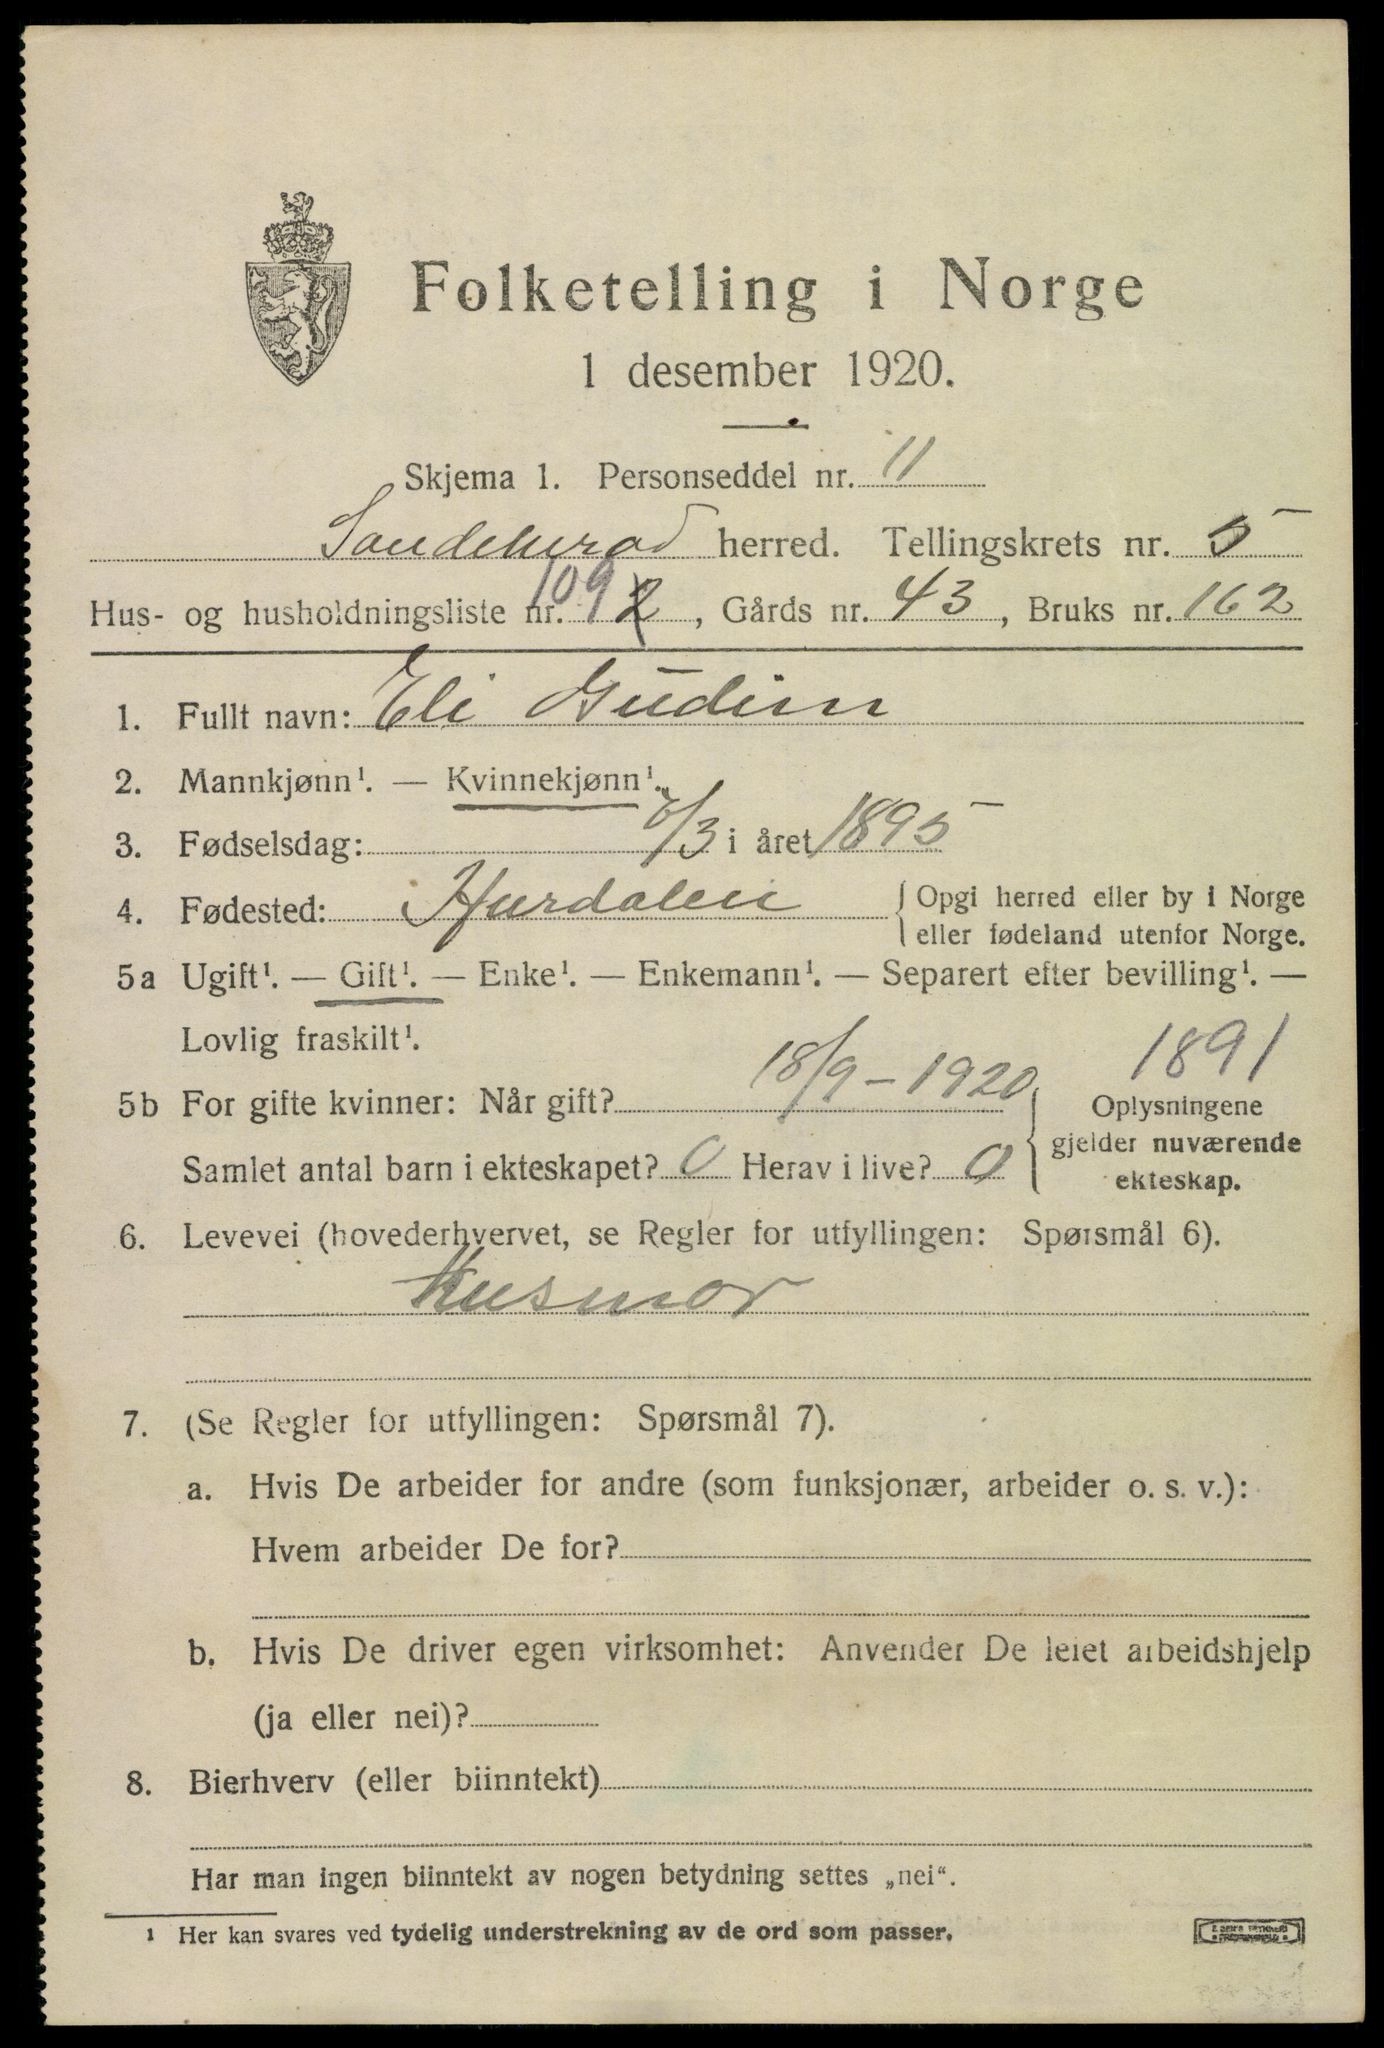 Folketelling i Norge
1 desember 1920.
Skjema 1. Personseddel nr. 11
Sandeherad herred. Tellingskrets nr. 5
Hus- og husholdningsliste nr. 109 2, Gårds nr. 43, Bruks nr. 162
1. Fullt navn: Eli Gudim
2. Mannkjønn¹. — Kvinnekjønn¹.
3. Fødselsdag: /3 i året 1895
4. Fødested: Hurdalen { Opgi herred eller by i Norge
eller fødeland utenfor Norge.
5a Ugift¹. — Gift¹. — Enke¹. — Enkemann¹. — Separert efter bevilling¹. —
Lovlig fraskilt¹.
1891
5b For gifte kvinner: Når gift? 18/9 – 1920 Oplysningene
gjelder nuværende
Samlet antal barn i ekteskapet? 0 Herav i live? 0 ekteskap.
6. Levevei (hovederhvervet, se Regler for utfyllingen: Spørsmål 6).
Husmor
7. (Se Regler for utfyllingen: Spørsmål 7).
a. Hvis De arbeider for andre (som funksjonær, arbeider o. s. v.):
Hvem arbeider De for?
b. Hvis De driver egen virksomhet: Anvender De leiet arbeidshjelp
(ja eller nei)?
8. Bierhverv (eller biinntekt)
Har man ingen biinntekt av nogen betydning settes „nei“.
¹ Her kan svares ved tydelig understrekning av de ord som passer.